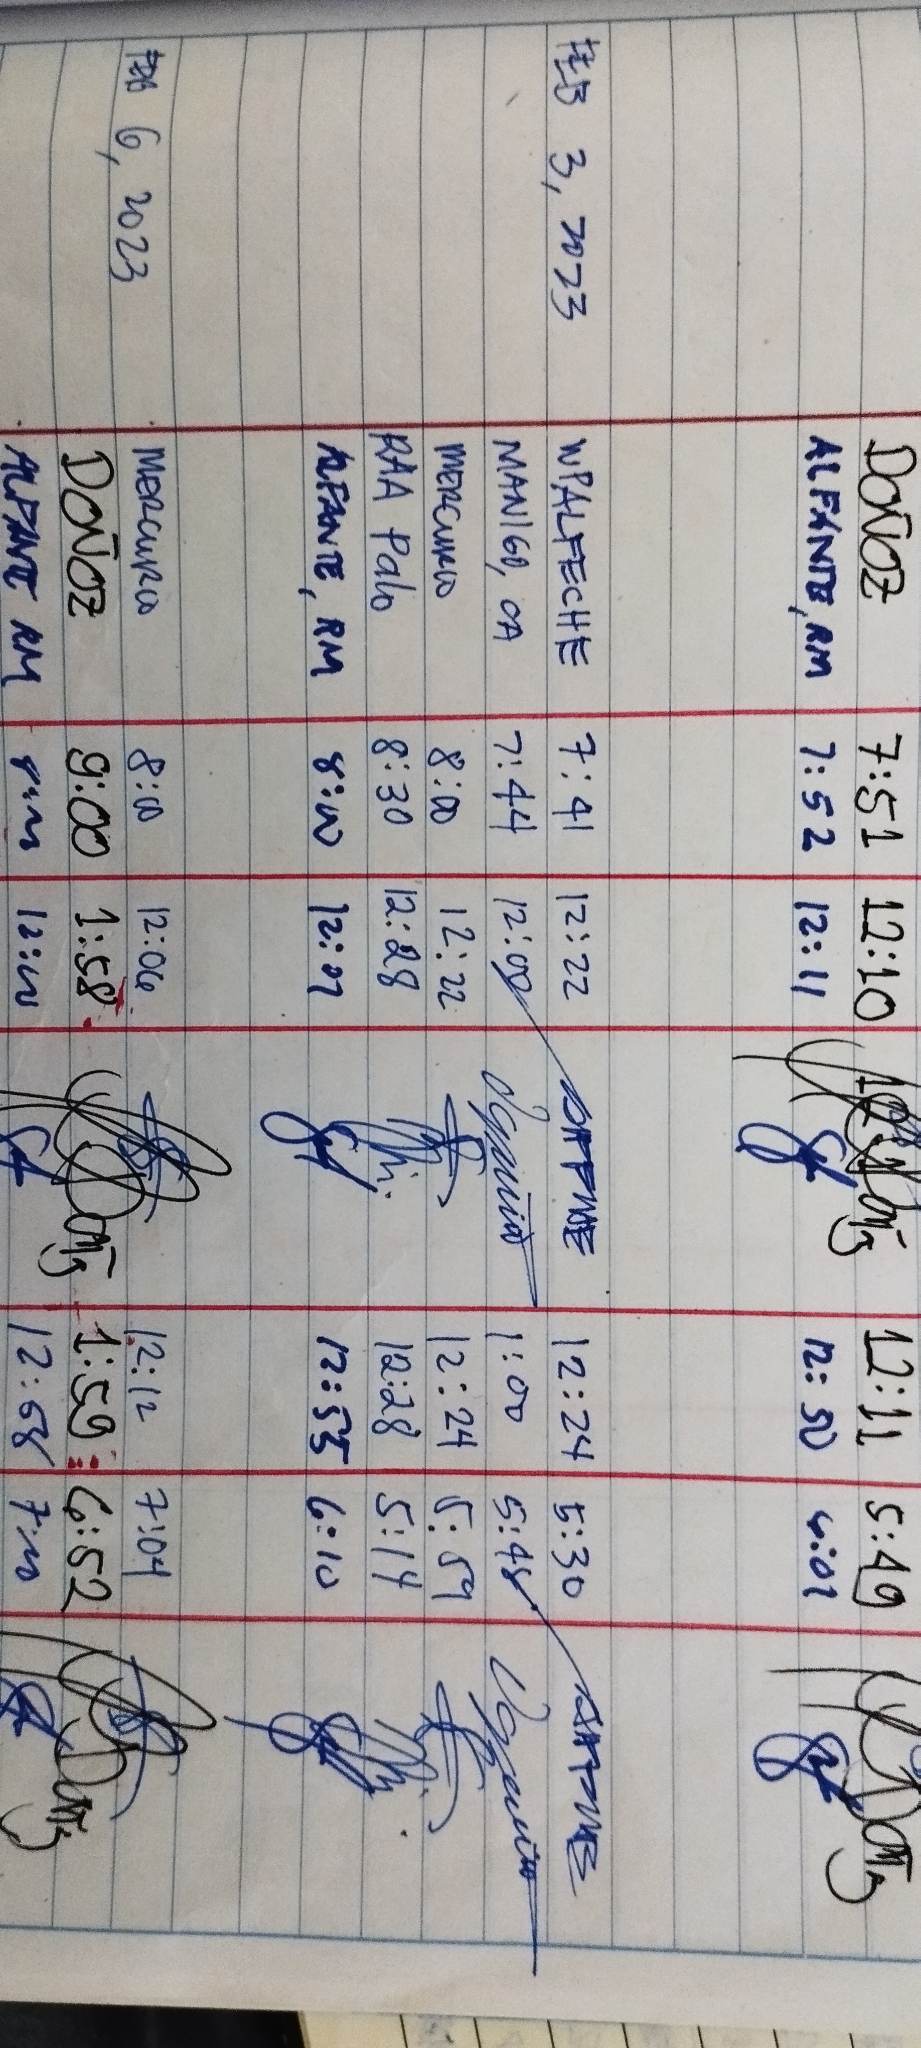 DOÑOZ 7:51 12:10 12:11 5:49
ALFANTE, RM 7:52 12:11 12:50 6:01
FEB 3, 2023 WPALFECHE 7:41 12:22 12:24 5:30
MANIGO, OA 7:44 12:00 1:00 5:48
MERCURIO 8:00 12:22 12:24 5:59
RAA Palo 8:30 12:28 12:28 5:14
ALFANTE, RM 8:00 12:07 12:55 6:10
FEB 6, 2023 MERCURIO 8:00 12:06 12:12 7:04
DOÑOZ 9:00 1:58 1:59 6:52
ALFANTE RM 8:00 12:00 12:58 7:00